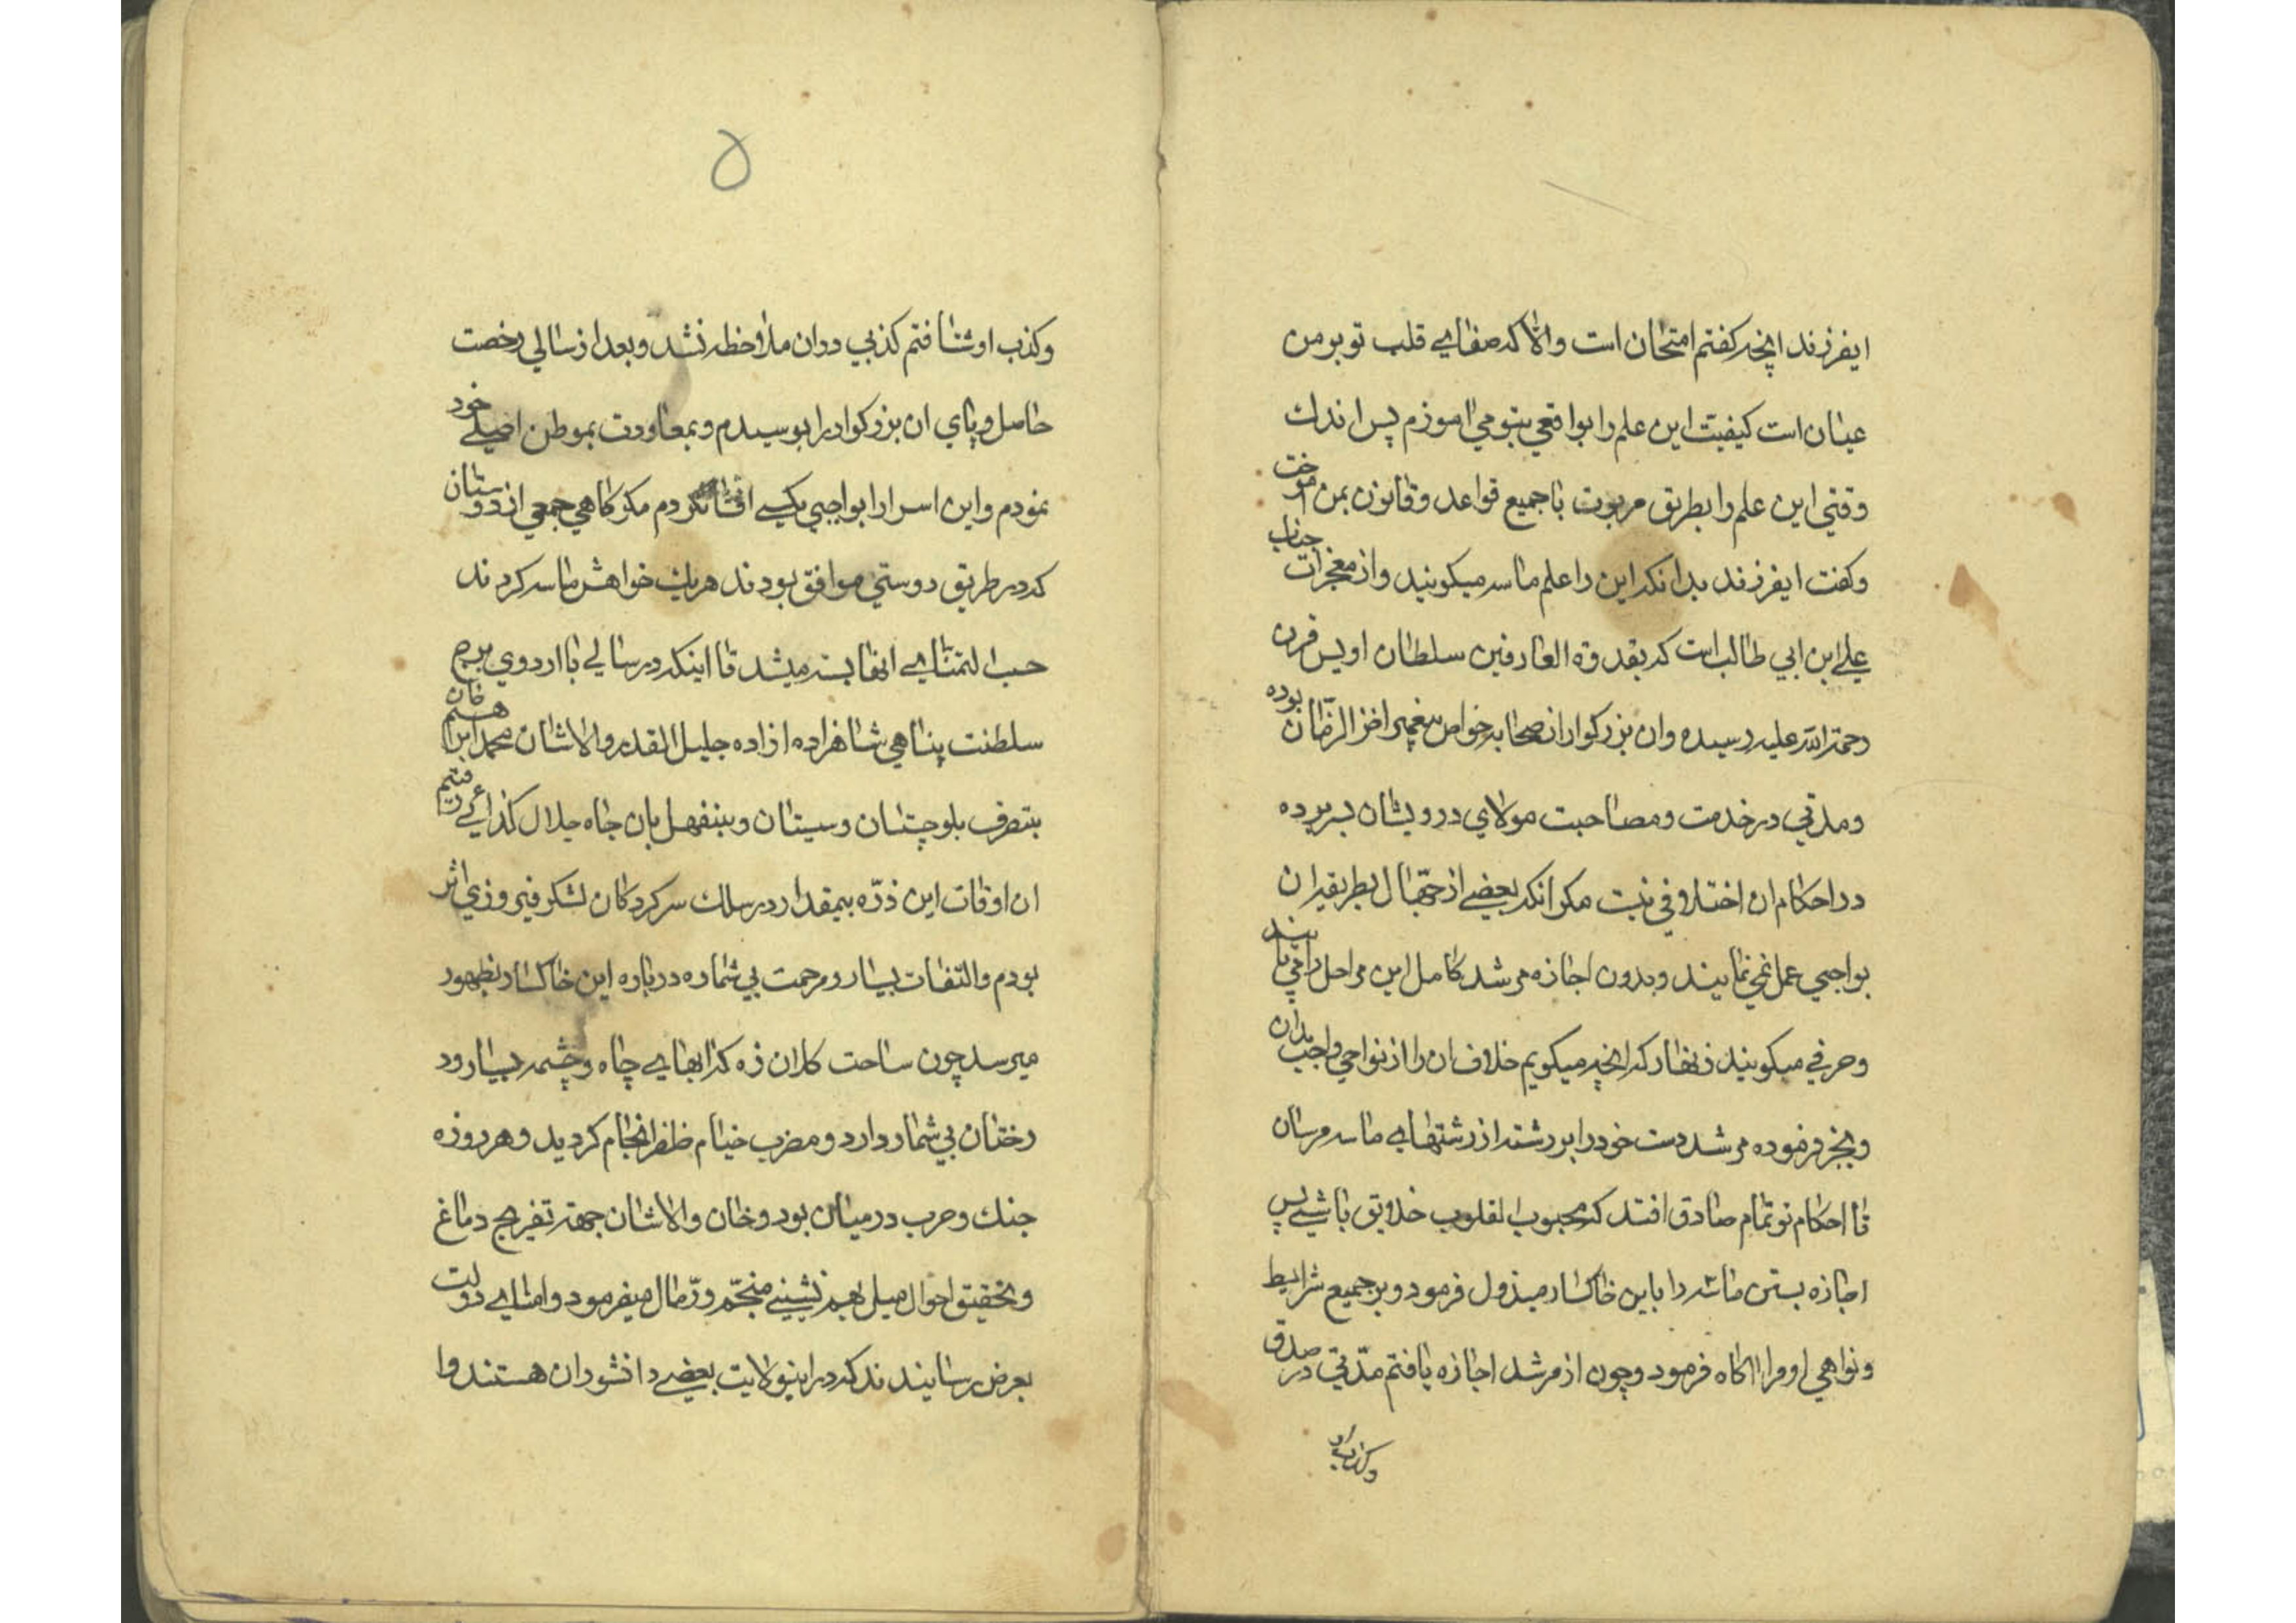 ایفرزند انچه کفتم امتحان است والا که صفایی قلب تو بر من
عیان است کیفیت این علم را بواقعی بتو می اموزم پس اندك
وقتی این علم را بطریق مربوت با جمیع قواعد و قانون بمن اموخت
و کفت ایفرزند بدانکه این را علم ماسه میکویند و از معجزات جناب
علی ابن ابی طالب است که بقدوة العارفین سلطان اویس قرن
رحمة الله علیه رسیده و ان بزرکوار از صحابه خواص پیغمبر اخر الزمان بوده
و مدتی در خدمت و مصاحبت مولای درویشان بسر برده
در احکام ان اختلافی نیست مکر انکه بعضی از جهال بطریقه ان
بواجبی عمل نمی نمایند و بدون اجازه مرشد کامل این مراحل را می یابند
و حرفی میکویند زنهار که انچه میکویم خلاف ان را از نواحی واجب بدان
و بجز فرموده مرشد دست خود را بر رشته از رشتهایی ماسه مرسان
تا احکام تو تمام صادق افتد که محبوب القلوب خلایق باشی پس
اجازه بستن ماسه را باین خاکسار مبذول فرمود و بر جمیع شرایط
و نواهی او مرا اکاه فرمود و چون از مرشد اجازه یافتم مدتی در صدق
و کذب او
۵
و کذب او شتافتم کذبی در ان ملاحظه نشد و بعد از سالی رخصت
حاصل و پای ان بزرکوار را بوسیدم و بمعاودت بموطن اصیلی خود
نمودم و این اسرار را بواجبی بکسی افشا نکردم مکر کاهی جمعی از دوستان
که در طریق دوستی موافق بودند هریك خواهش ماسه کردند
حسب التمنایی انها بسته میشد تا اینکه در سالی با اردوی برج
سلطنت پناهی شاهزاده ازاده جلیل القدر والاشان محمد ابراهیم خان
بتصرف بلوچستان و سیستان و بنفهل بان جاه جلال کذایی رفتم
ان اوقات این ذره بیمقدار در سلك سرکردکان لشکر فیروزی اثر
بودم و التفات بسیار و مرحمت بی شماره درباره این خاکسار بظهور
میرسد چون ساحت کلان زه که ابهایی چاه و چشمه بسیار و د
رختان بی شمار دارد و مضرب خیام ظفر انجام کردید و هر روزه
جنك و حرب در میان بود و خان والاشان جهة تفریح دماغ
و تحقیق احوال میل بهم نشینی منجم و رمال میفرمود و امنایی دولت
بعرض رسانیدند که در اینولایت بعضی دانشوران هستند و ا